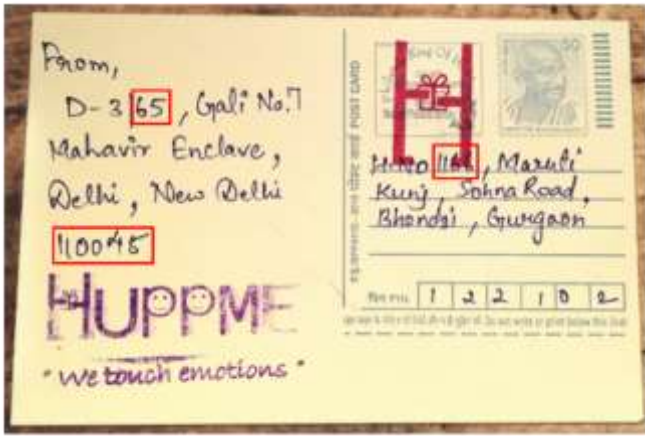 From,
D-365, Gali No.7
Mahavir Enclave,
Delhi, New Delhi
110045
HUPPME
"We touch emotions"
POST CARD
50
H
1166, Maruti
Kunj, Sohna Road,
Bhondsi, Gurgaon
PIN
122102